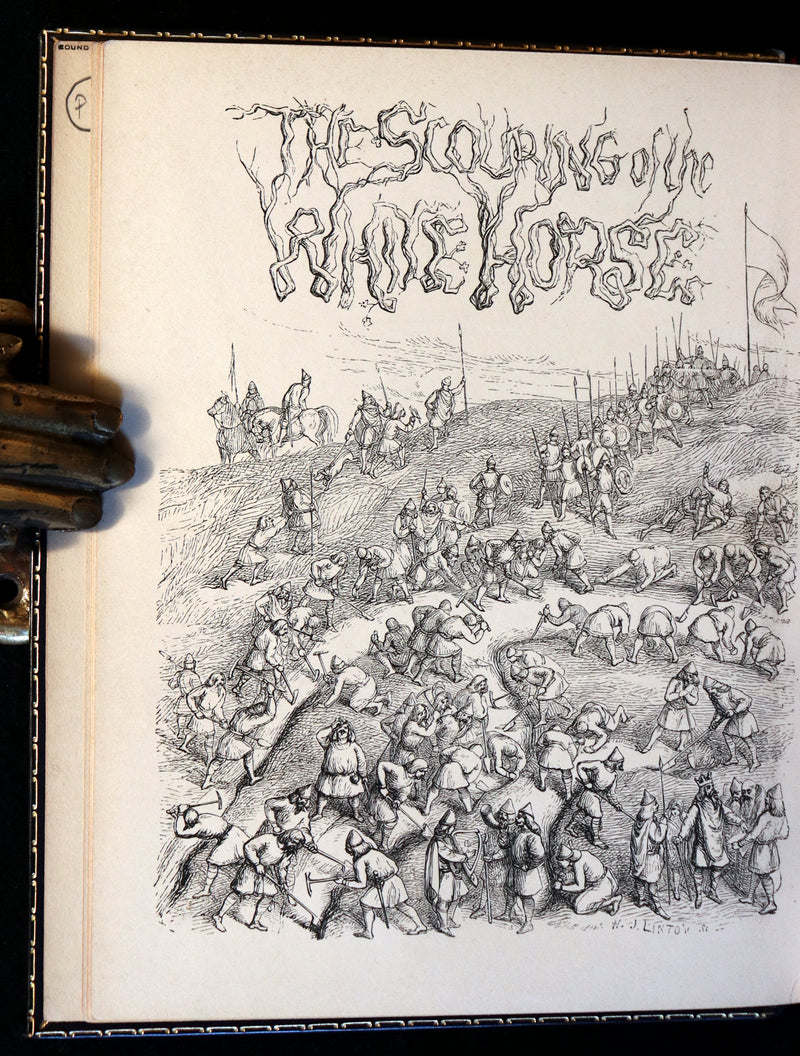 BOUND
P
THE SCOURING of the
WHITE HORSE
W. J. LINTON Sc